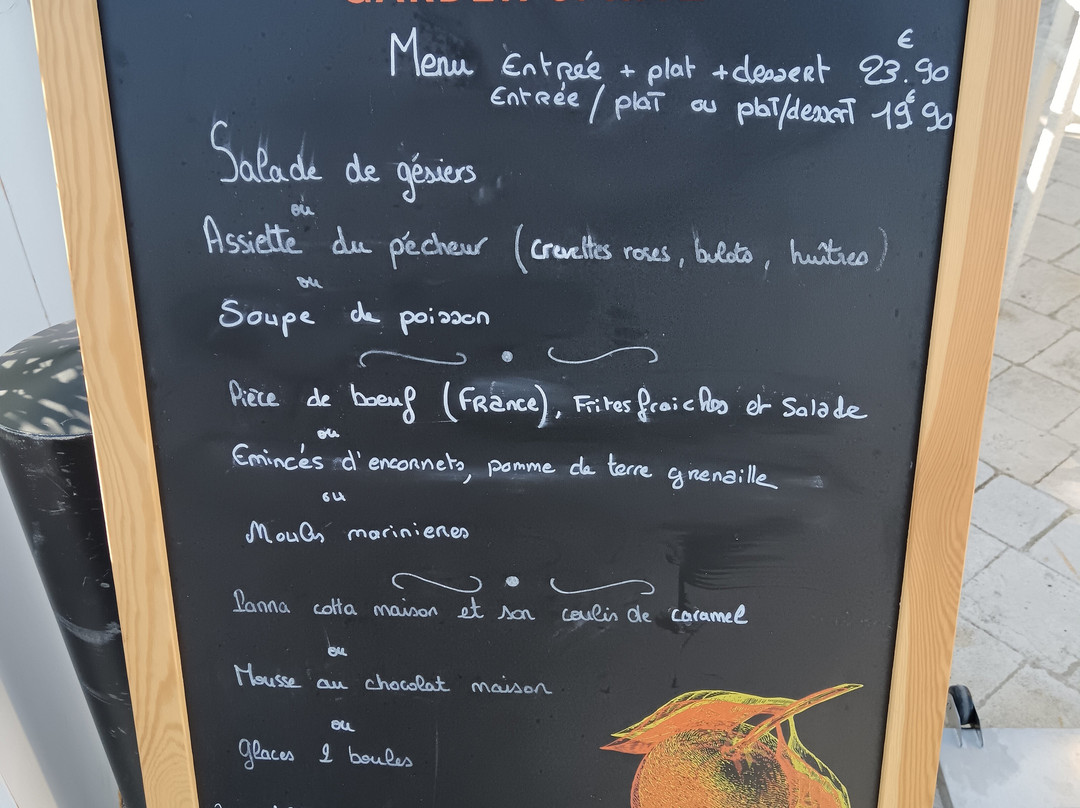 Menu Entrée + plat + dessert 23.90 €
Entrée / plat ou plat/dessert 19€90
Salade de gésiers
ou
Assiette du pêcheur (crevettes roses, bulots, huîtres)
ou
Soupe de poisson
Pièce de boeuf (France), Frites fraiches et Salade
ou
Emincés d'encornets, pomme de terre grenaille
ou
Moules marinieres
Panna cotta maison et son coulis de caramel
ou
Mousse au chocolat maison
ou
Glaces 2 boules